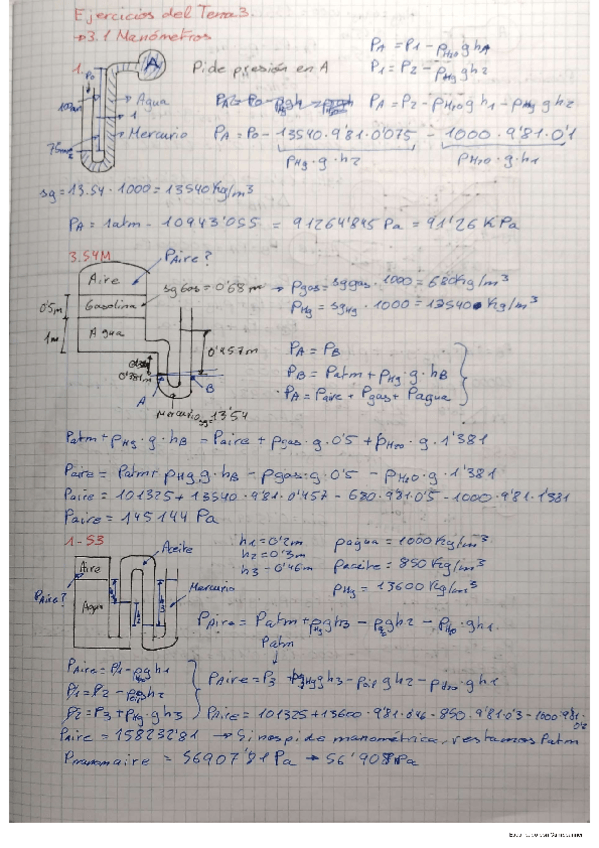 Ejercicios del Tema 3.
→ 3.1 Manómetros
1.
P0
A
Pide presión en A
PA = P1 - ρH2O g hA
P1 = P2 - ρHg g h2
Agua
1
Mercurio
PA = P2 - ρH2O g h1 - ρHg g h2
PA = P0 - 13540·9'81·0'075 - 1000·9'81·0'1
ρHg·g·h2
ρH2O·g·h1
sg = 13.54·1000 = 13540 Kg/m³
PA = 1atm - 10943'055 = 91264'845 Pa = 91'26 KPa
3.54M
PAire?
Aire
Gasolina
Agua
0'5m
1m
sg Gas = 0'68 m
→ ρgas = sg gas·1000 = 680 Kg/m³
ρHg = sgHg·1000 = 13540 Kg/m³
0'457m
0'381m
A
B
Mercurio sg=13'54
PA = PB
PB = Patm + ρHg·g·hB
PA = Paire + Pgas + Pagua
Patm + ρHg·g·hB = Paire + ρgas·g·0'5 + ρH2O·g·1'381
Paire = Patm + ρHg·g·hB - ρgas·g·0'5 - ρH2O·g·1'381
Paire = 101325 + 13540·9'81·0'457 - 680·9'81·0'5 - 1000·9'81·1'381
Paire = 145144 Pa
1-53
Aceite
Aire
PAire?
Agua
Mercurio
h1 = 0'2m
h2 = 0'3m
h3 = 0'46m
ρagua = 1000 Kg/m³
ρaceite = 850 Kg/m³
ρHg = 13600 Kg/m³
PAire = Patm + ρHg g h3 - ρ g h2 - ρH2O·g h1
Patm
PAire = P1 - ρH2O g h1
P1 = P2 - ρ g h2
P2 = P3 + ρHg·g·h3
PAire = P3 + ρHg g h3 - ρ g h2 - ρH2O g h1
PAire = 101325 + 13600·9'81·0'46 - 850·9'81·0'3 - 1000·9'81·0'2
PAire = 158232'81 → Si nos pide manométrica, restamos Patm
Pmanomaire = 56907'81 Pa → 56'908 KPa